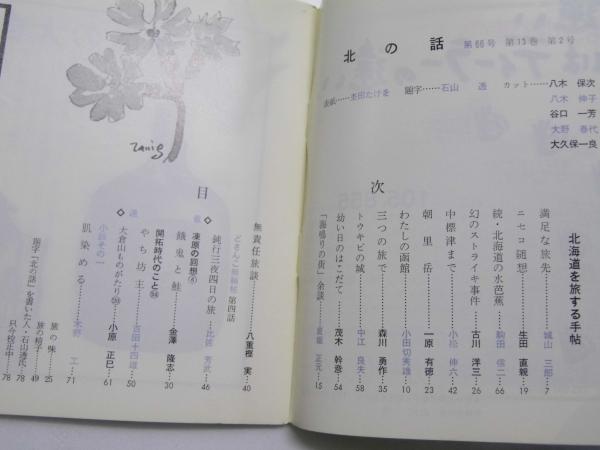 北の話 第66号 第13巻 第2号
表紙……杢田たけを 題字……石山 透 カット……八木 保次
八木 伸子
谷口 一芳
大野 春代
大久保一良
目次
北海道を旅する手帖
満足な旅先……城山 三郎…7
ニセコ随想……生田 直親…19
続・北海道の水芭蕉……駒田 信二…66
幻のストライキ事件……古川 洋三…26
中標津まで……小松 伸六…42
朝里岳……一原 有徳…23
わたしの函館……小田切秀雄…10
三つの旅で……森川 勇作…35
トウキビの城……中江 良夫…58
幼い日のはこだて……茂木 幹彦…54
「海鳴りの街」余談……正元…15
無責任旅談……八重樫 実…40
どさんこ無銭帖 第四話
鈍行三夜四日の旅……比佐 芳武…46
凍原の回想④
餓鬼と鮭……金澤 隆志…30
開拓時代のこと
やち坊主……吉田十四雄…50
◇連載◇
大倉山ものがたり……小原 正巳…61
小説その一
肌染める……木野 工…71
旅の味…25
旅の椅子…49
題字「北の話」を書いた人・石山透氏…78
只今校正中…78
Tanig